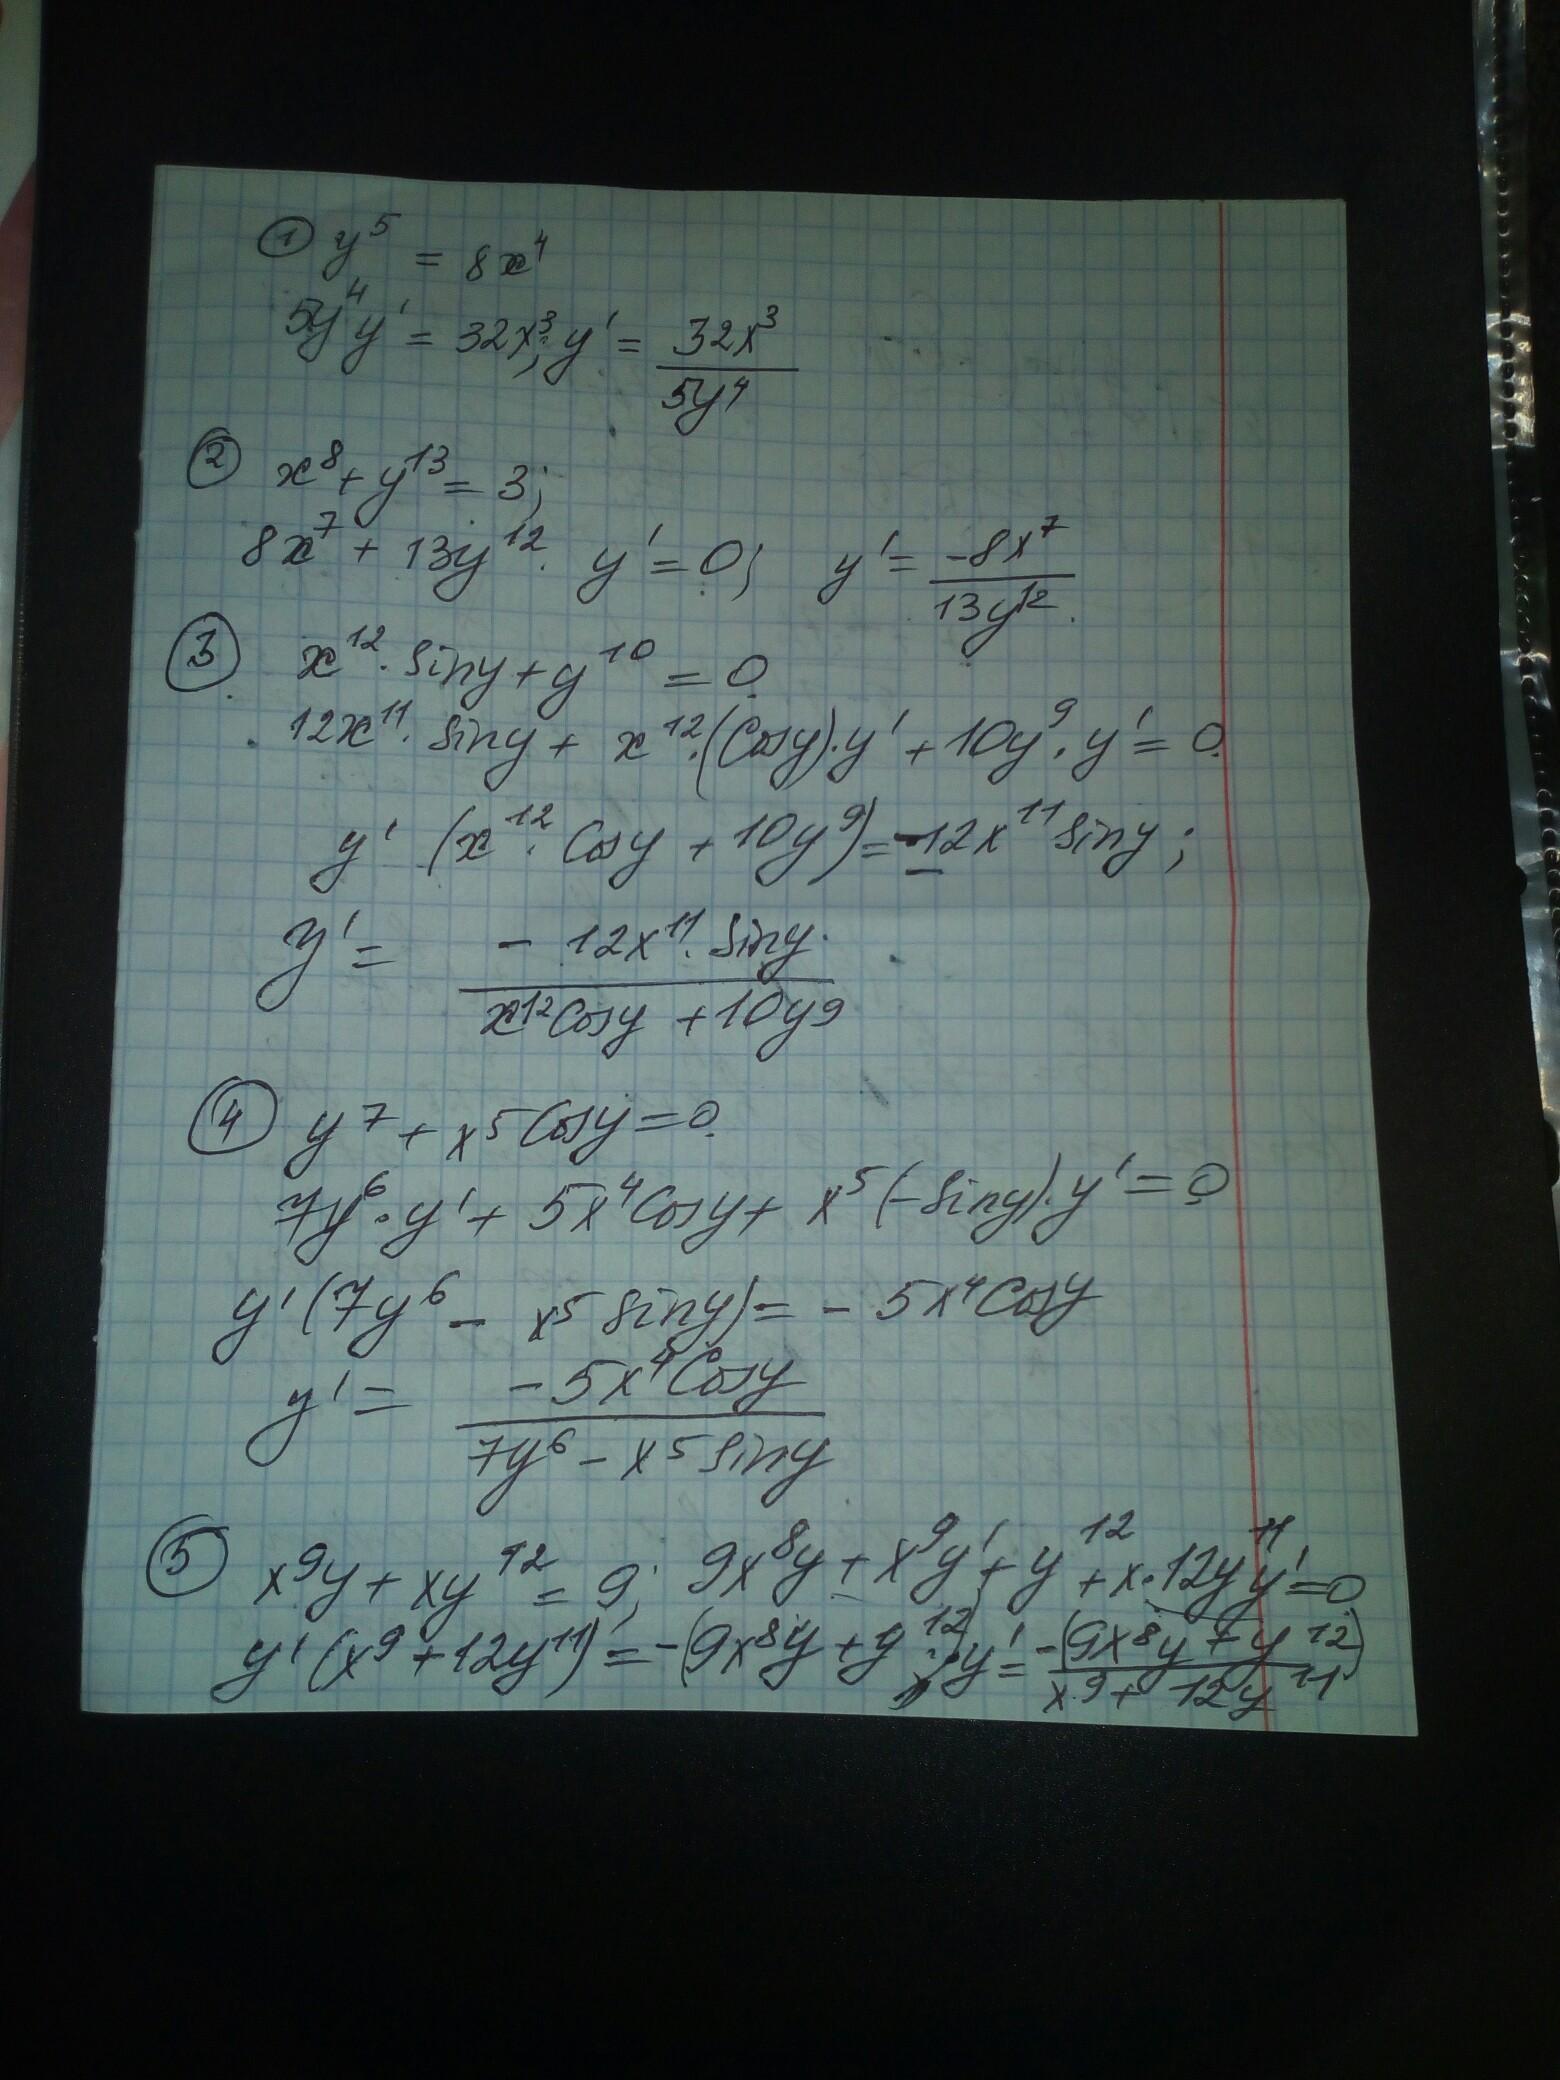 ① y⁵ = 8x⁴
5y⁴y' = 32x³; y' = 32x³ / 5y⁴
② x⁸ + y¹³ = 3;
8x⁷ + 13y¹² · y' = 0; y' = -8x⁷ / 13y¹².
③ x¹² · siny + y¹⁰ = 0.
12x¹¹ · siny + x¹² · (Cosy) · y' + 10y⁹ · y' = 0.
y' (x¹² · Cosy + 10y⁹) = -12x¹¹ siny;
y' = - 12x¹¹ · siny / x¹² Cosy + 10y⁹
④ y⁷ + x⁵ Cosy = 0.
7y⁶ · y' + 5x⁴ Cosy + x⁵ (-siny) · y' = 0
y' (7y⁶ - x⁵ siny) = - 5x⁴ Cosy
y' = -5x⁴ Cosy / 7y⁶ - x⁵ siny
⑤ x⁹y + xy¹² = 9; 9x⁸y + x⁹y' + y¹² + x · 12y¹¹y' = 0
y' (x⁹ + 12y¹¹) = -(9x⁸y + y¹²); y' = -(9x⁸y + y¹²) / x⁹ + 12y¹¹